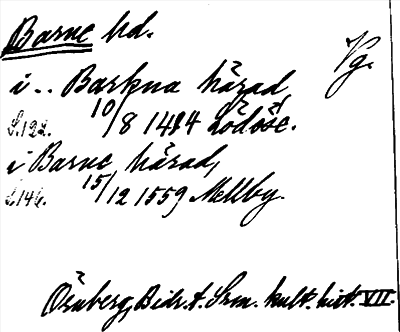 Barne hd.
Vg.
i .. Barkna härad,
S.122. 10/8 1484 Lödöse.
i Barne härad,
S.146. 15/12 1559 Mellby.
Örnberg, Bidr. t. Svm. kult. hist. VII.